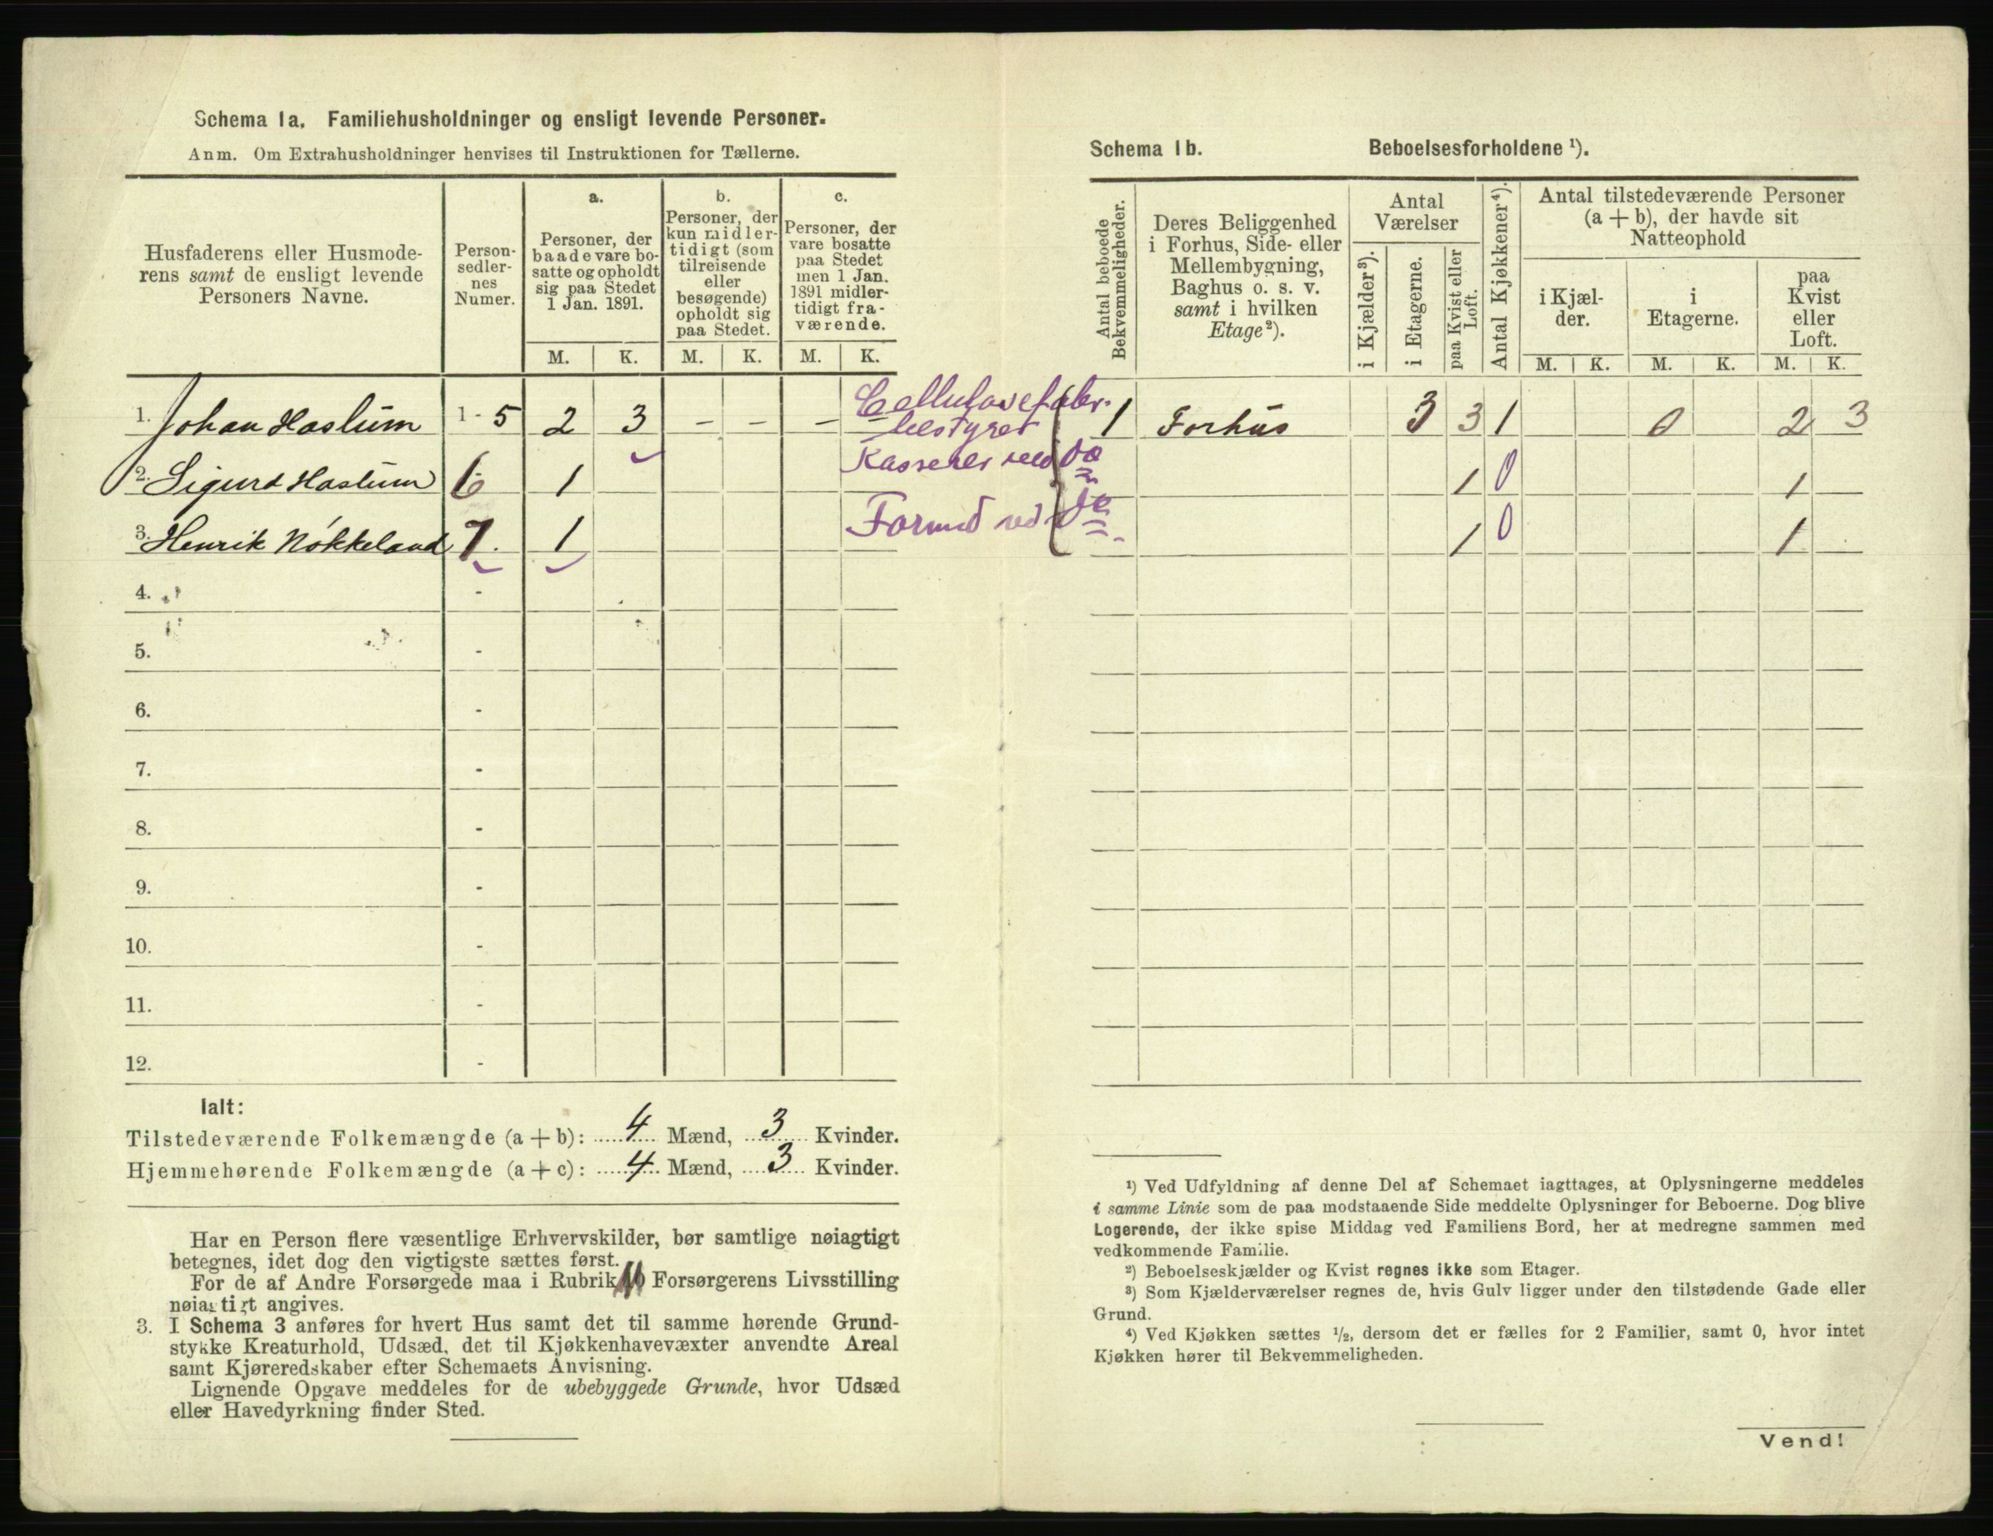 Schema 1a. Familiehusholdninger og ensligt levende Personer.
Anm. Om Extrahusholdninger henvises til Instruktionen for Tællerne.
Husfaderens eller Husmode-
rens samt de ensligt levende
Personers Navne.
Person-
sedler-
nes
Numer.
a.
Personer, der
baade vare bo-
satte og opholdt
sig paa Stedet
1 Jan. 1891.
b.
Personer, der
kun midler-
tidigt (som
tilreisende
eller
besøgende)
opholdt sig
paa Stedet.
c.
Personer, der
vare bosatte
paa Stedet
men 1 Jan.
1891 midler-
tidigt fra-
værende.
M. K. M. K. M. K.
1. Johan Haslum 1 - 5 2 3 - - - Cellulosefabr.
bestyrer
2. Sigurd Haslum 6 1 Kasserer ved do
3. Henrik Nökkeland 7. 1 Formd ved do
4. -
5. -
6. -
7. -
8. -
9. -
10. -
11. -
12. -
Ialt:
Tilstedeværende Folkemængde (a + b): 4 Mænd, 3 Kvinder.
Hjemmehørende Folkemængde (a + c): 4 Mænd, 3 Kvinder.
Har en Person flere væsentlige Erhvervskilder, bør samtlige nøiagtigt
betegnes, idet dog den vigtigste sættes først.
For de af Andre Forsørgede maa i Rubrik Forsørgerens Livsstilling
nøiagtigt angives.
3. I Schema 3 anføres for hvert Hus samt det til samme hørende Grund-
stykke Kreaturhold, Udsæd, det til Kjøkkenhavevæxter anvendte Areal
samt Kjøreredskaber efter Schemaets Anvisning.
Lignende Opgave meddeles for de ubebyggede Grunde, hvor Udsæd
eller Havedyrkning finder Sted.
Schema 1b. Beboelsesforholdene ¹).
Antal beboede
Bekvemmeligheder.
Deres Beliggenhed
i Forhus, Side- eller
Mellembygning,
Baghus o. s. v.
samt i hvilken
Etage²).
Antal
Værelser
i Kjælder³).
i Etagerne.
paa Kvist eller
Loft.
Antal Kjøkkener⁴).
Antal tilstedeværende Personer
(a + b), der havde sit
Natteophold
i Kjæl-
der.
i
Etagerne.
paa
Kvist
eller
Loft.
M. K. M. K. M. K.
1 Forhus 3 3 1 0 2 3
1 0 1
1 0 1
¹) Ved Udfyldning af denne Del af Schemaet iagttages, at Oplysningerne meddeles
i samme Linie som de paa modstaaende Side meddelte Oplysninger for Beboerne. Dog blive
Logerende, der ikke spise Middag ved Familiens Bord, her at medregne sammen med
vedkommende Familie.
²) Beboelseskjælder og Kvist regnes ikke som Etager.
³) Som Kjælderværelser regnes de, hvis Gulv ligger under den tilstødende Gade eller
Grund.
⁴) Ved Kjøkken sættes ½, dersom det er fælles for 2 Familier, samt 0, hvor intet
Kjøkken hører til Bekvemmeligheden.
Vend!